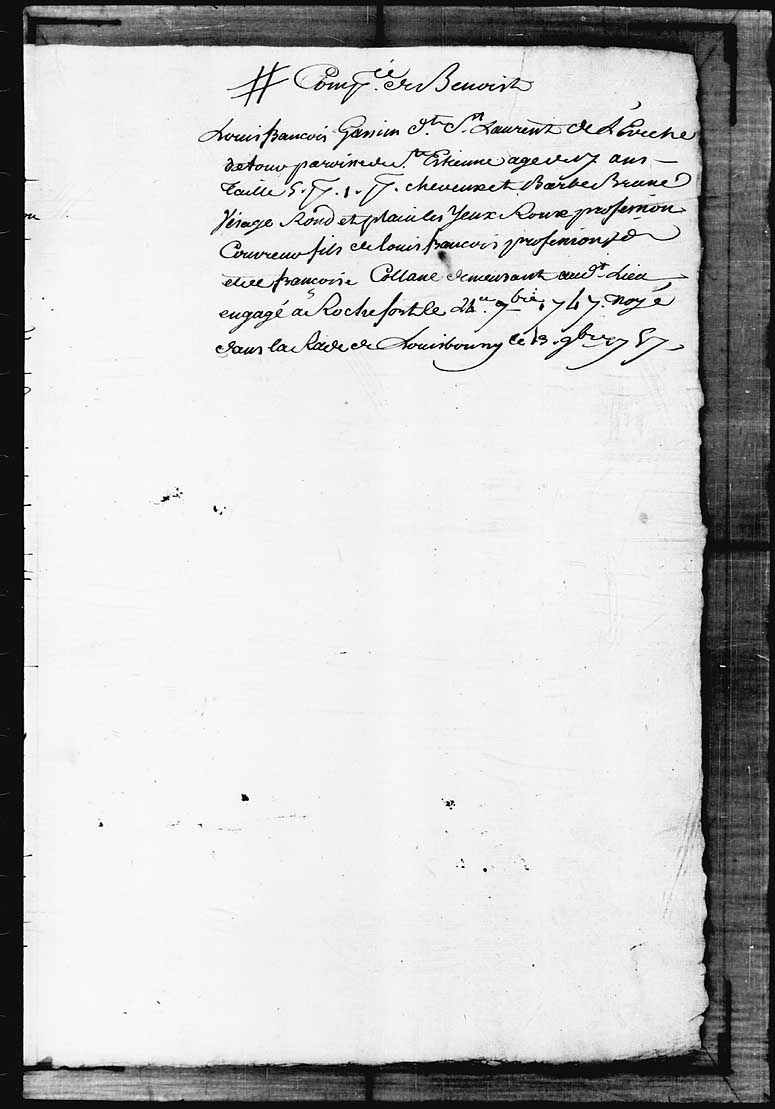 # Comp.ie de Benoist
Louis francois Gassion d.t S.t Laurent de L'Eveché
de toul paroisse de S.t Estienne age de 17 ans
taille 5. p. 1. p. cheveux et Barbe Brune
Visage Rond et plain les yeux Roux profession
Couvreur fils de louis francois profession jd
et de francoise Collane demeurant aud.t Lieu
engagé a Rochefort le 24.e 7bre 1747. noyé
dans la Rade de Louisbourg le 13. 9bre 1757